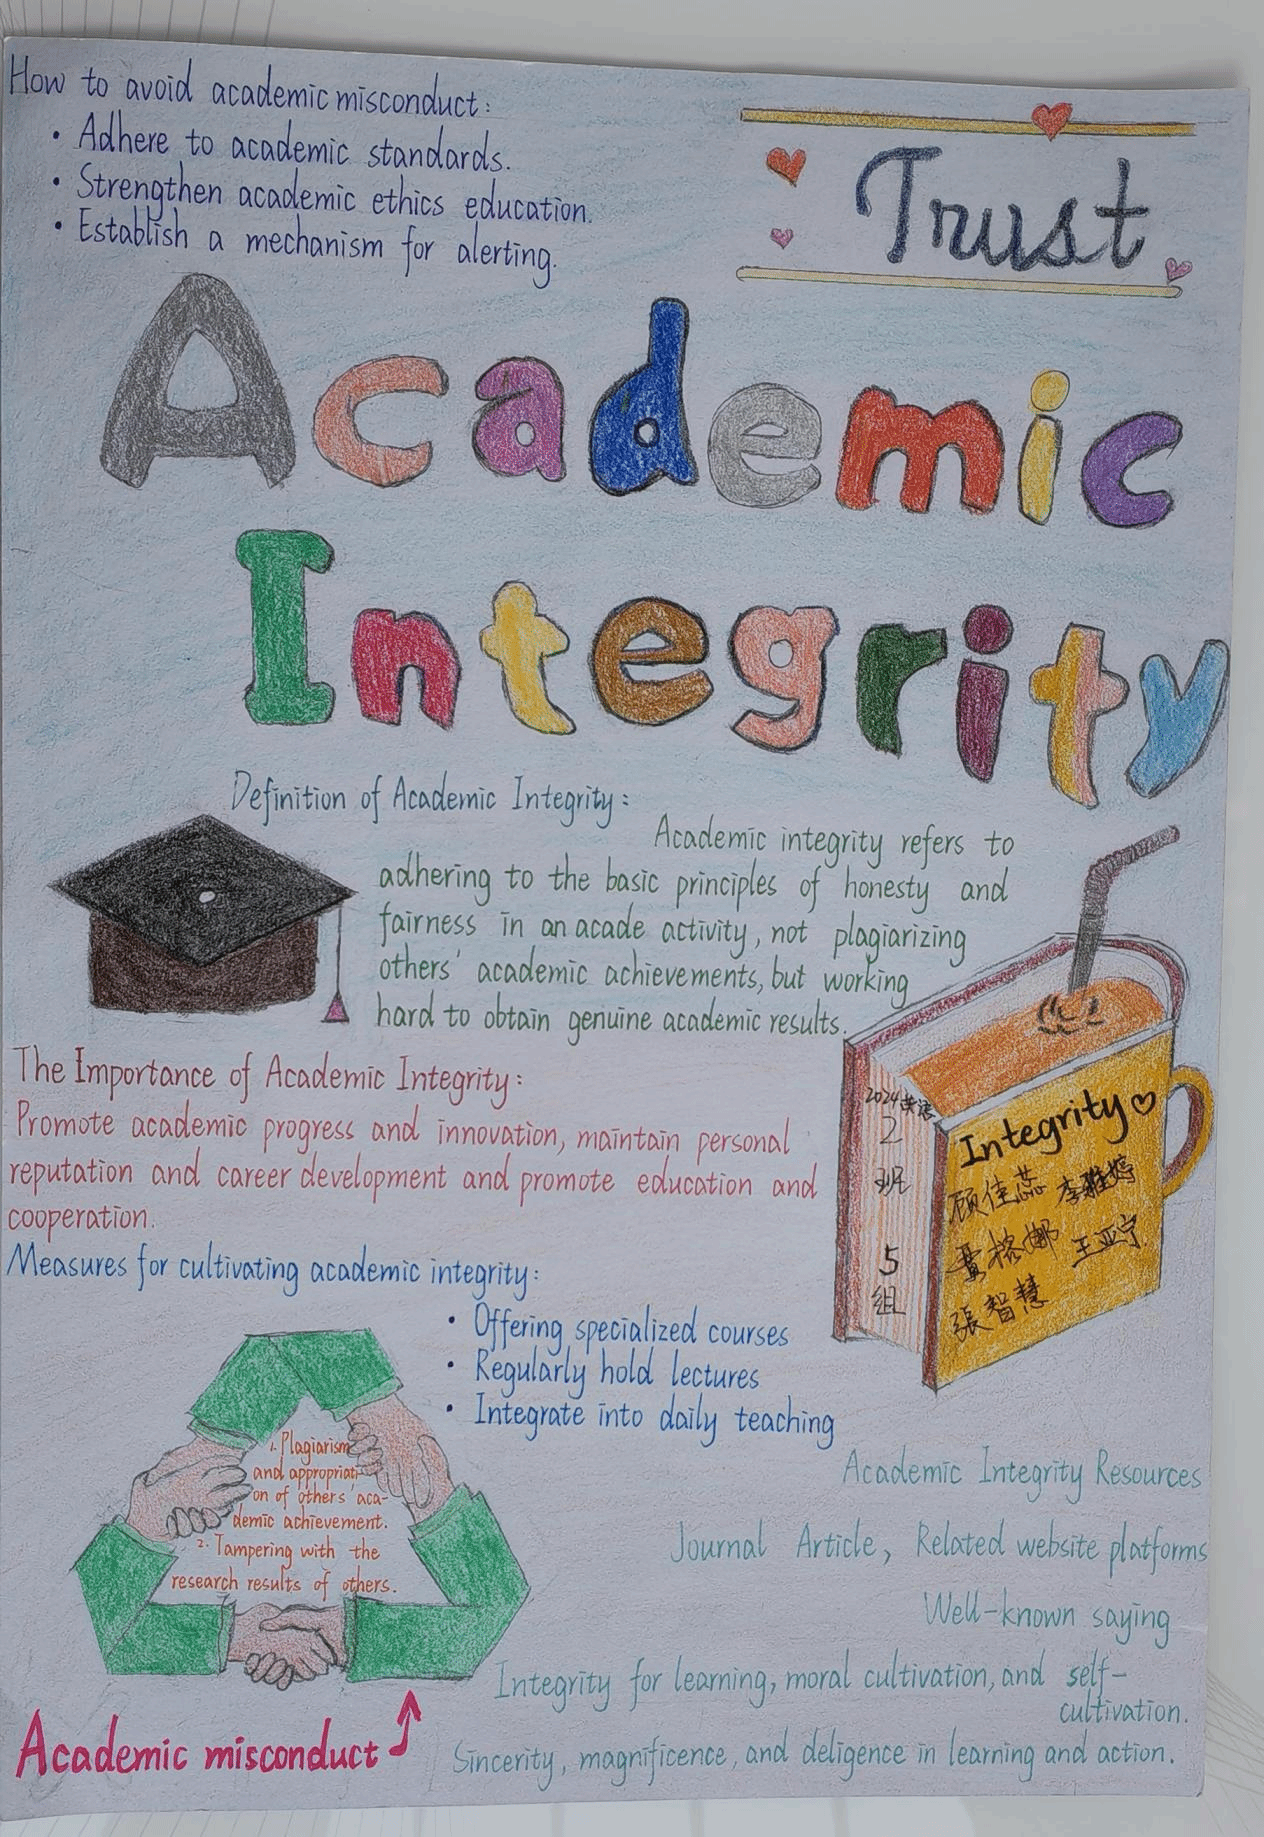 How to avoid academic misconduct:
• Adhere to academic standards.
• Strengthen academic ethics education.
• Establish a mechanism for alerting.
Trust
Academic
Integrity
Definition of Academic Integrity:
Academic integrity refers to
adhering to the basic principles of honesty and
fairness in an acade activity, not plagiarizing
others' academic achievements, but working
hard to obtain genuine academic results.
The Importance of Academic Integrity:
Promote academic progress and innovation, maintain personal
reputation and career development and promote education and
cooperation.
2024英语
2
班
5
组
Integrity♡
顾佳蕊 李雅婷
贾格娜 王亚宁
張智慧
Measures for cultivating academic integrity:
• Offering specialized courses
• Regularly hold lectures
• Integrate into daily teaching
1. Plagiarism
and appropriati-
on of others' aca-
demic achievement.
2. Tampering with the
research results of others.
Academic misconduct
Academic Integrity Resources
Journal Article, Related website platforms
Well-known saying
Integrity for learning, moral cultivation, and self-
cultivation.
Sincerity, magnificence, and deligence in learning and action.